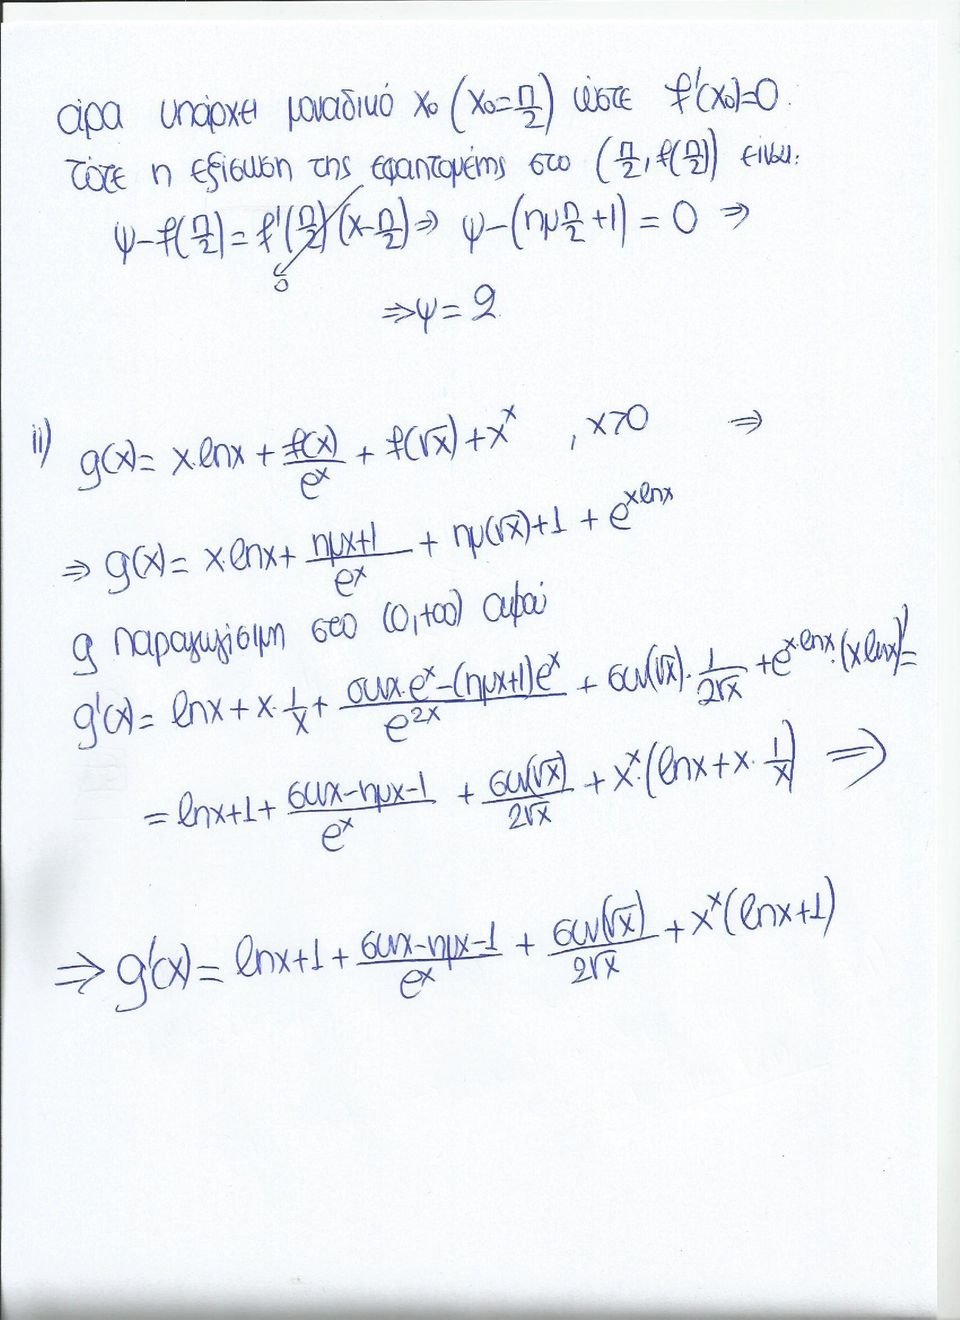 άρα υπάρχει μοναδικό x₀ (x₀=π/2) ώστε f'(x₀)=0.
τότε η εξίσωση της εφαπτομένης στο (π/2, f(π/2)) είναι:
ψ-f(π/2)=f'(π/2)(x-π/2)⇒ ψ-(ημπ/2+1)=0 ⇒
0
⇒ψ=2
ii) g(x)= x·lnx + f(x)/eˣ + f(√x)+xˣ , x>0 ⇒
⇒ g(x)= x·lnx+ (ημx+1)/eˣ + ημ(√x)+1 + e^(xlnx)
g παραγωγίσιμη στο (0,+∞) αφού
g'(x)= lnx+x·1/x+ (συνx·eˣ-(ημx+1)eˣ)/e²ˣ + συν(√x)·1/(2√x) +e^(x·lnx)·(xlnx)'=
=lnx+1+ (συνx-ημx-1)/eˣ + συν(√x)/(2√x) + xˣ·(lnx+x·1/x) ⇒
⇒ g'(x)= lnx+1+ (συνx-ημx-1)/eˣ + συν(√x)/(2√x) + xˣ(lnx+1)